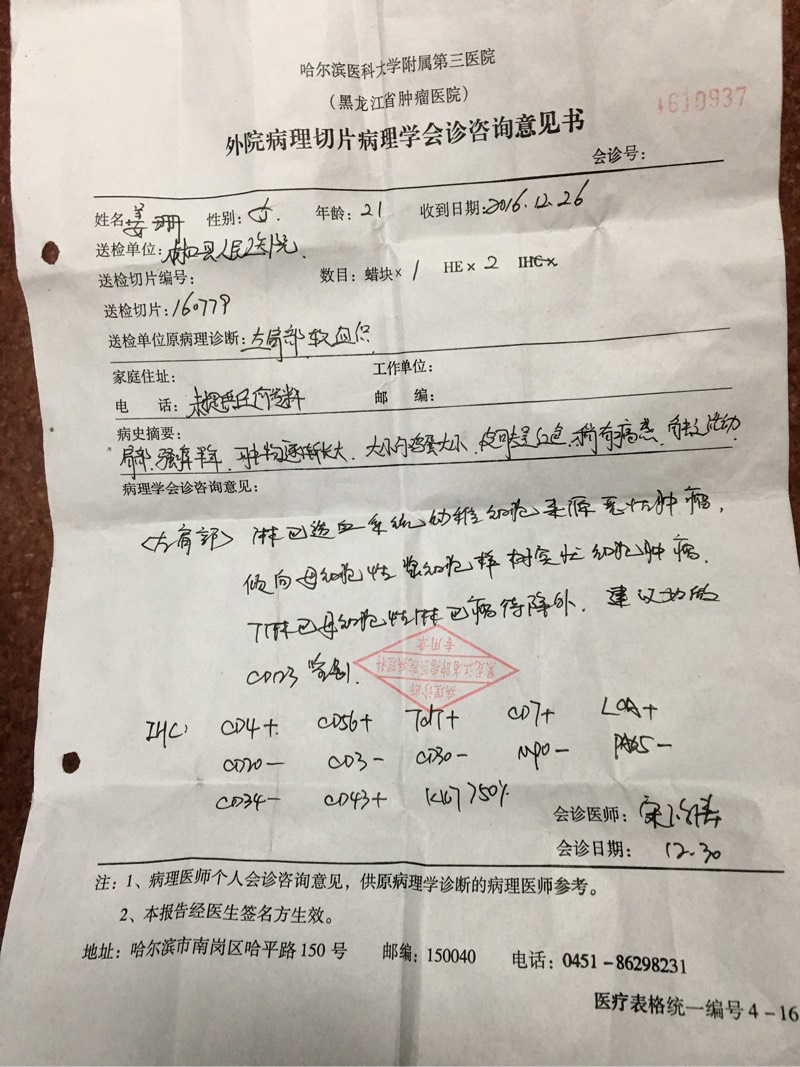 哈尔滨医科大学附属第三医院
（黑龙江省肿瘤医院）
1610937
外院病理切片病理学会诊咨询意见书
会诊号：
姓名：姜珊 性别：女. 年龄：21 收到日期：2016.12.26
送检单位：林口县人民医院
送检切片编号： 数目：蜡块×1 HE×2 IHC×
送检切片：160779
送检单位原病理诊断：左肩部软组织
家庭住址： 工作单位：
电 话：未提供任何资料 邮 编：
病史摘要：
肩部 半年. 肿物逐渐长大. 大小约鸡蛋大小. 皮肤呈红色. 稍有痛感.
病理学会诊咨询意见：
<左肩部> 淋巴造血系统幼稚细胞来源恶性肿瘤，
倾向母细胞性浆细胞样树突状细胞肿瘤.
T淋巴母细胞性淋巴瘤待除外. 建议加做
CD123鉴别.
黑龙江省肿瘤医院病理科
病理诊断
专用章
IHC: CD4+ CD56+ TdT+ CD7+ LCA+
CD20- CD3- CD30- MPO- PAX5-
CD34- CD43+ Ki67>50%
会诊医师：
会诊日期： 12.30
注：1、病理医师个人会诊咨询意见，供原病理学诊断的病理医师参考。
2、本报告经医生签名方生效。
地址：哈尔滨市南岗区哈平路150号 邮编：150040 电话：0451-86298231
医疗表格统一编号4-16